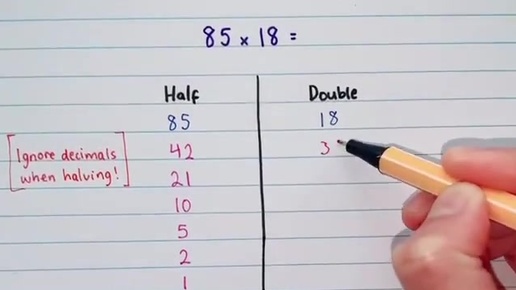 85 × 18 =
Half Double
85 18
[Ignore decimals when halving!] 42 3
21
10
5
2
1